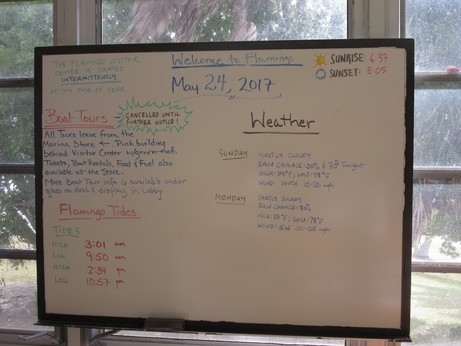 THE FLAMINGO VISITOR
CENTER IS STAFFED
INTERMITTENTLY
AT THIS TIME OF YEAR
Welcome to Flamingo
May 24, 2017
SUNRISE: 6:37
SUNSET: 8:05
Boat Tours
CANCELLED UNTIL
FURTHER NOTICE!
All Tours leave from the
Marina Store ← Pink building
behind Visitor Center w/green roof.
Tickets, Boat Rentals, Food & Fuel also
available at the Store.
More Boat Tour info is available under
glass on desk & display in Lobby
Flamingo Tides
TIDES
HIGH 3:01 am
LOW 9:50 am
HIGH 2:34 pm
LOW 10:57 pm
Weather
SUNDAY
MOSTLY CLOUDY
RAIN CHANCE: 30% & Tonight
WIND: SOUTH 15-20 mph
MONDAY
SUNNY
RAIN CHANCE:
LOW: 78°F
WIND: mph